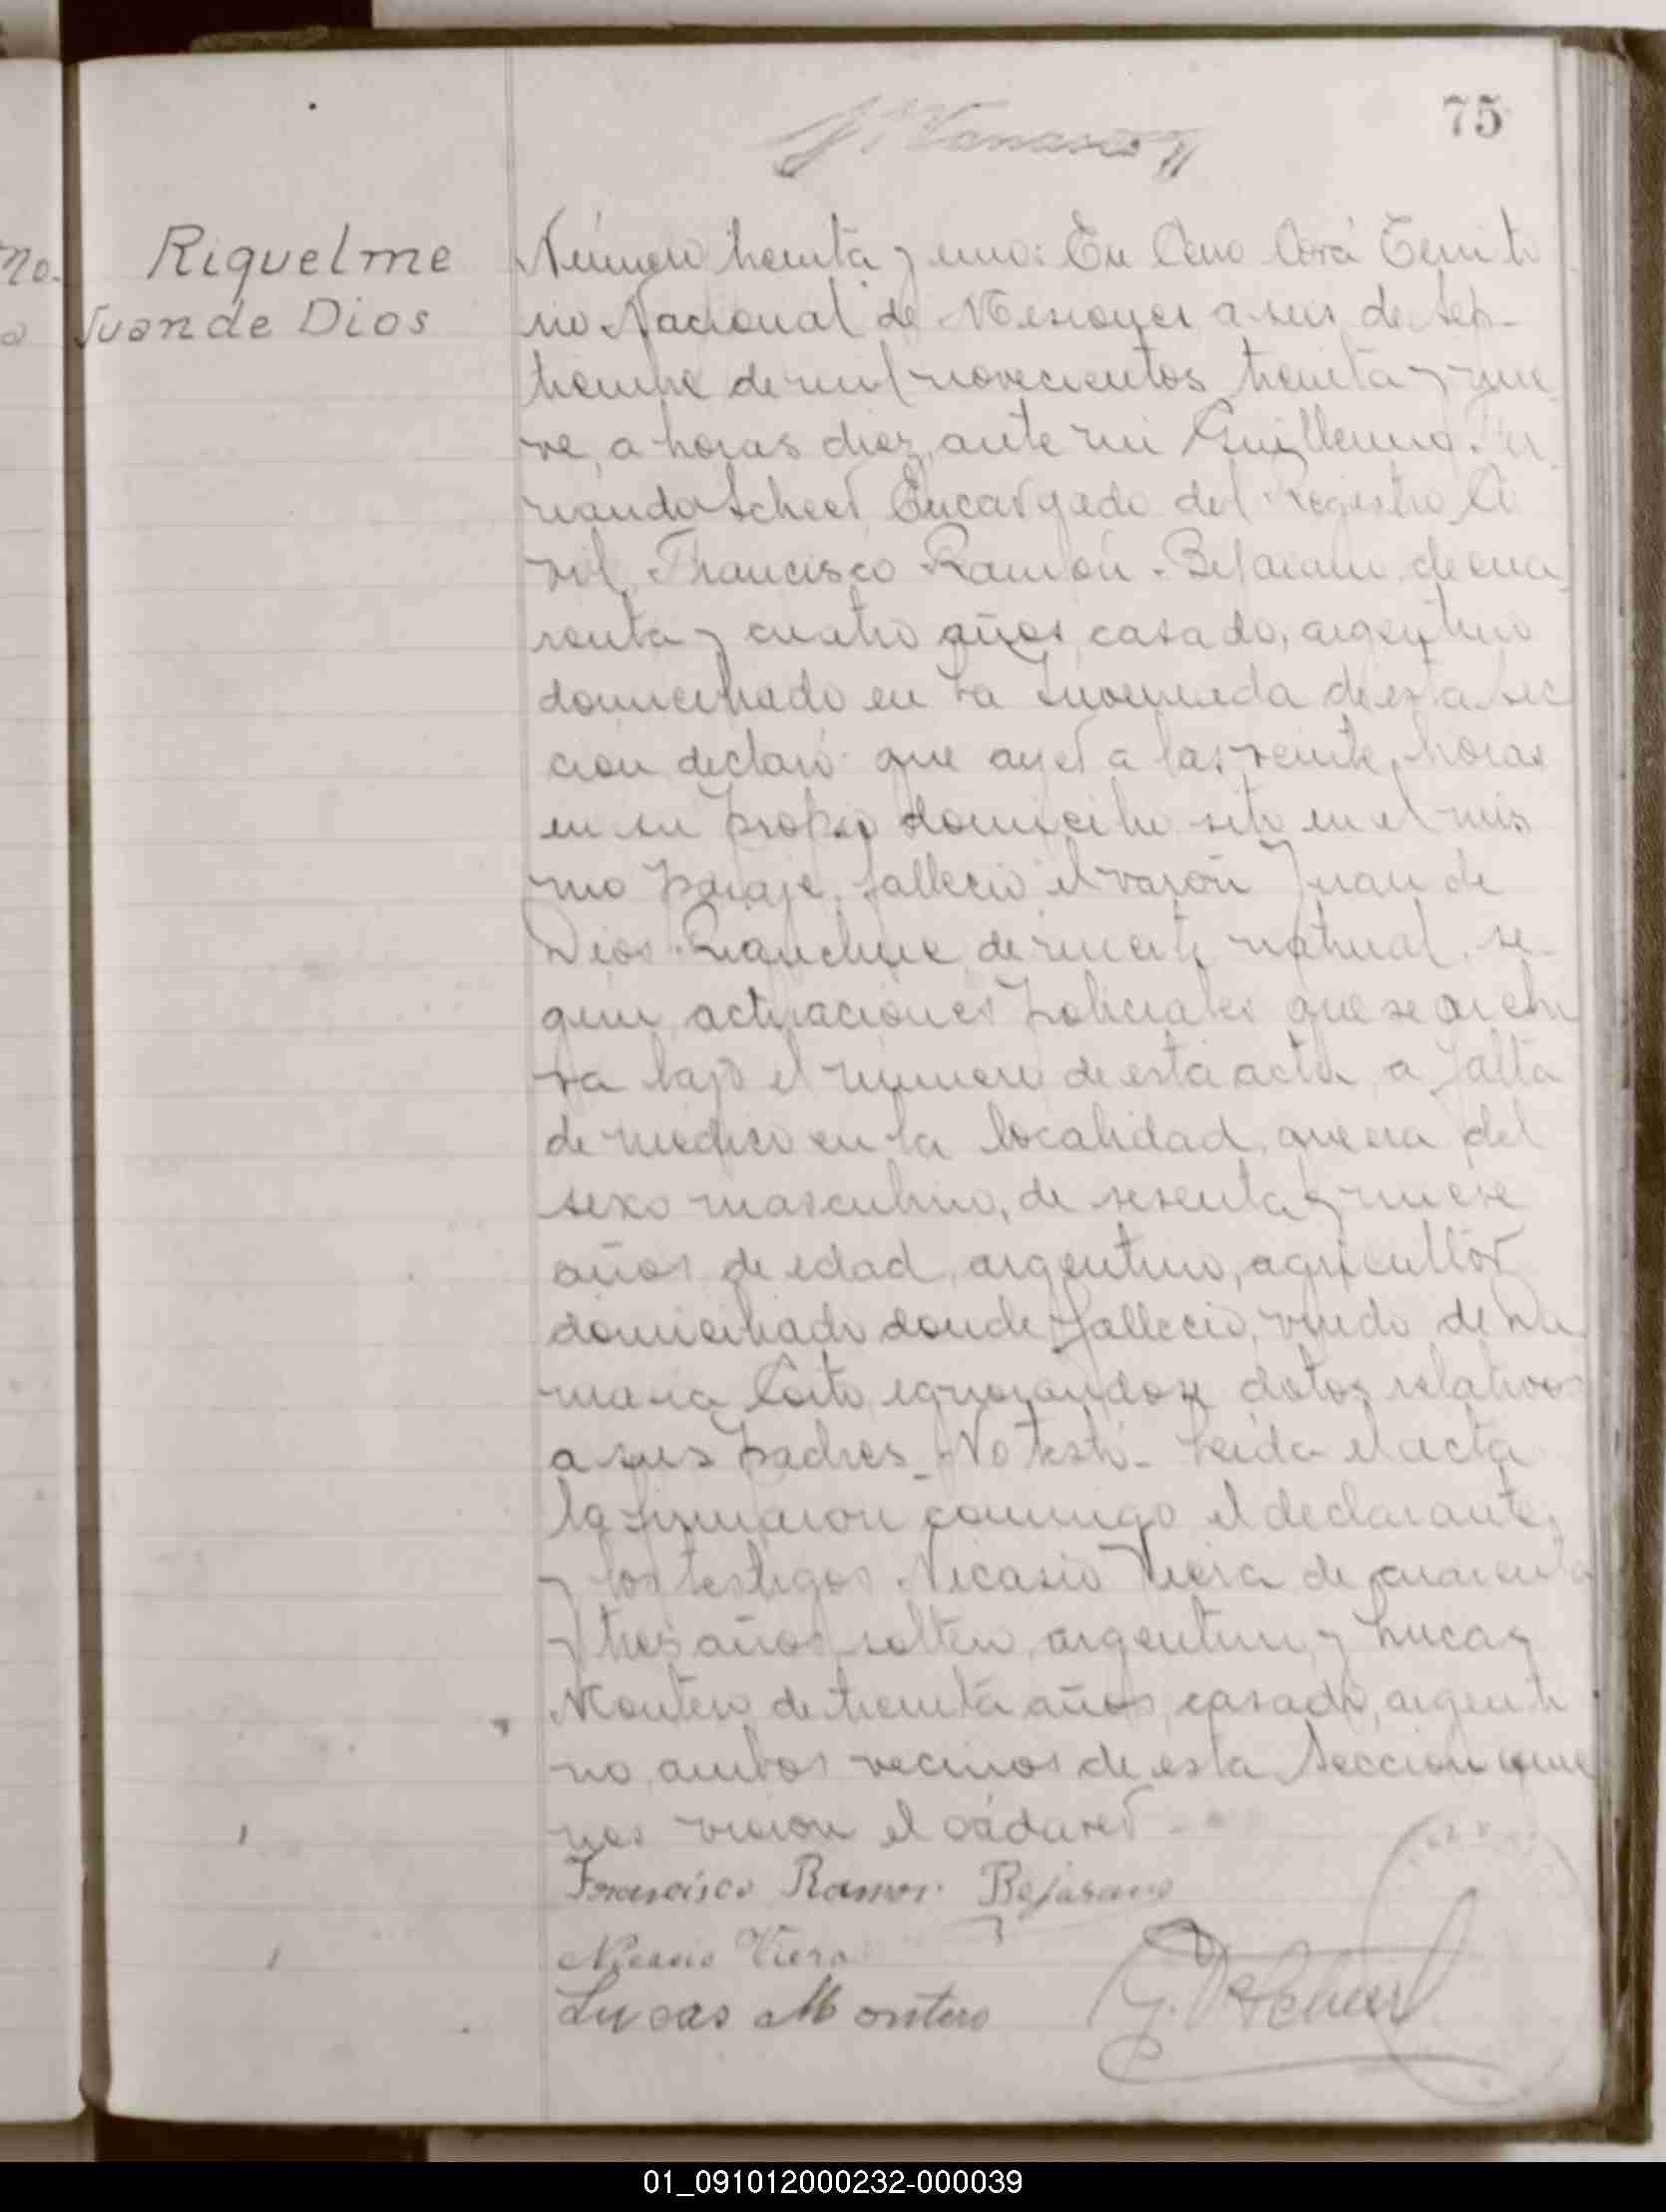 75
Riquelme
Juan de Dios
Número treinta y uno: En Cerro Corá Territo
rio Nacional de Misiones a seis de Sep-
tiembre de mil novecientos treinta y nue
ve, a horas diez, ante mi Guillermo Fer
nando Scheer Encargado del Registro Ci
vil, Francisco Ramón Bejarano, de cua
renta y cuatro años, casado, argentino
domiciliado en La Invernada de esta Sec
cion declaró: que ayer a las veinte horas
en su propio domicilio sito en el mis
mo paraje, falleció el varón Juan de
Dios Riquelme de muerte natural, se-
gun actuaciones policiales que se archi
va bajo el número de esta acta, a falta
de medico en la localidad, que era del
sexo masculino, de sesenta y nueve
años de edad, argentino, agricultor
domiciliado donde falleció, viudo de Da
masia ignorandose datos relativos
a sus padres_ No testó_ Leida el acta
la firmaron conmigo el declarante,
y los testigos Nicasio Viera de cuarenta
y tres años, soltero, argentino y Lucas
Montero de treinta años, casado, argenti
no, ambos vecinos de esta Seccion quie
nes vieron el cádaver
Francisco Ramon Bejarano
Nicasio Viera
Lucas Montero
G. F. Scheer
01_091012000232-000039